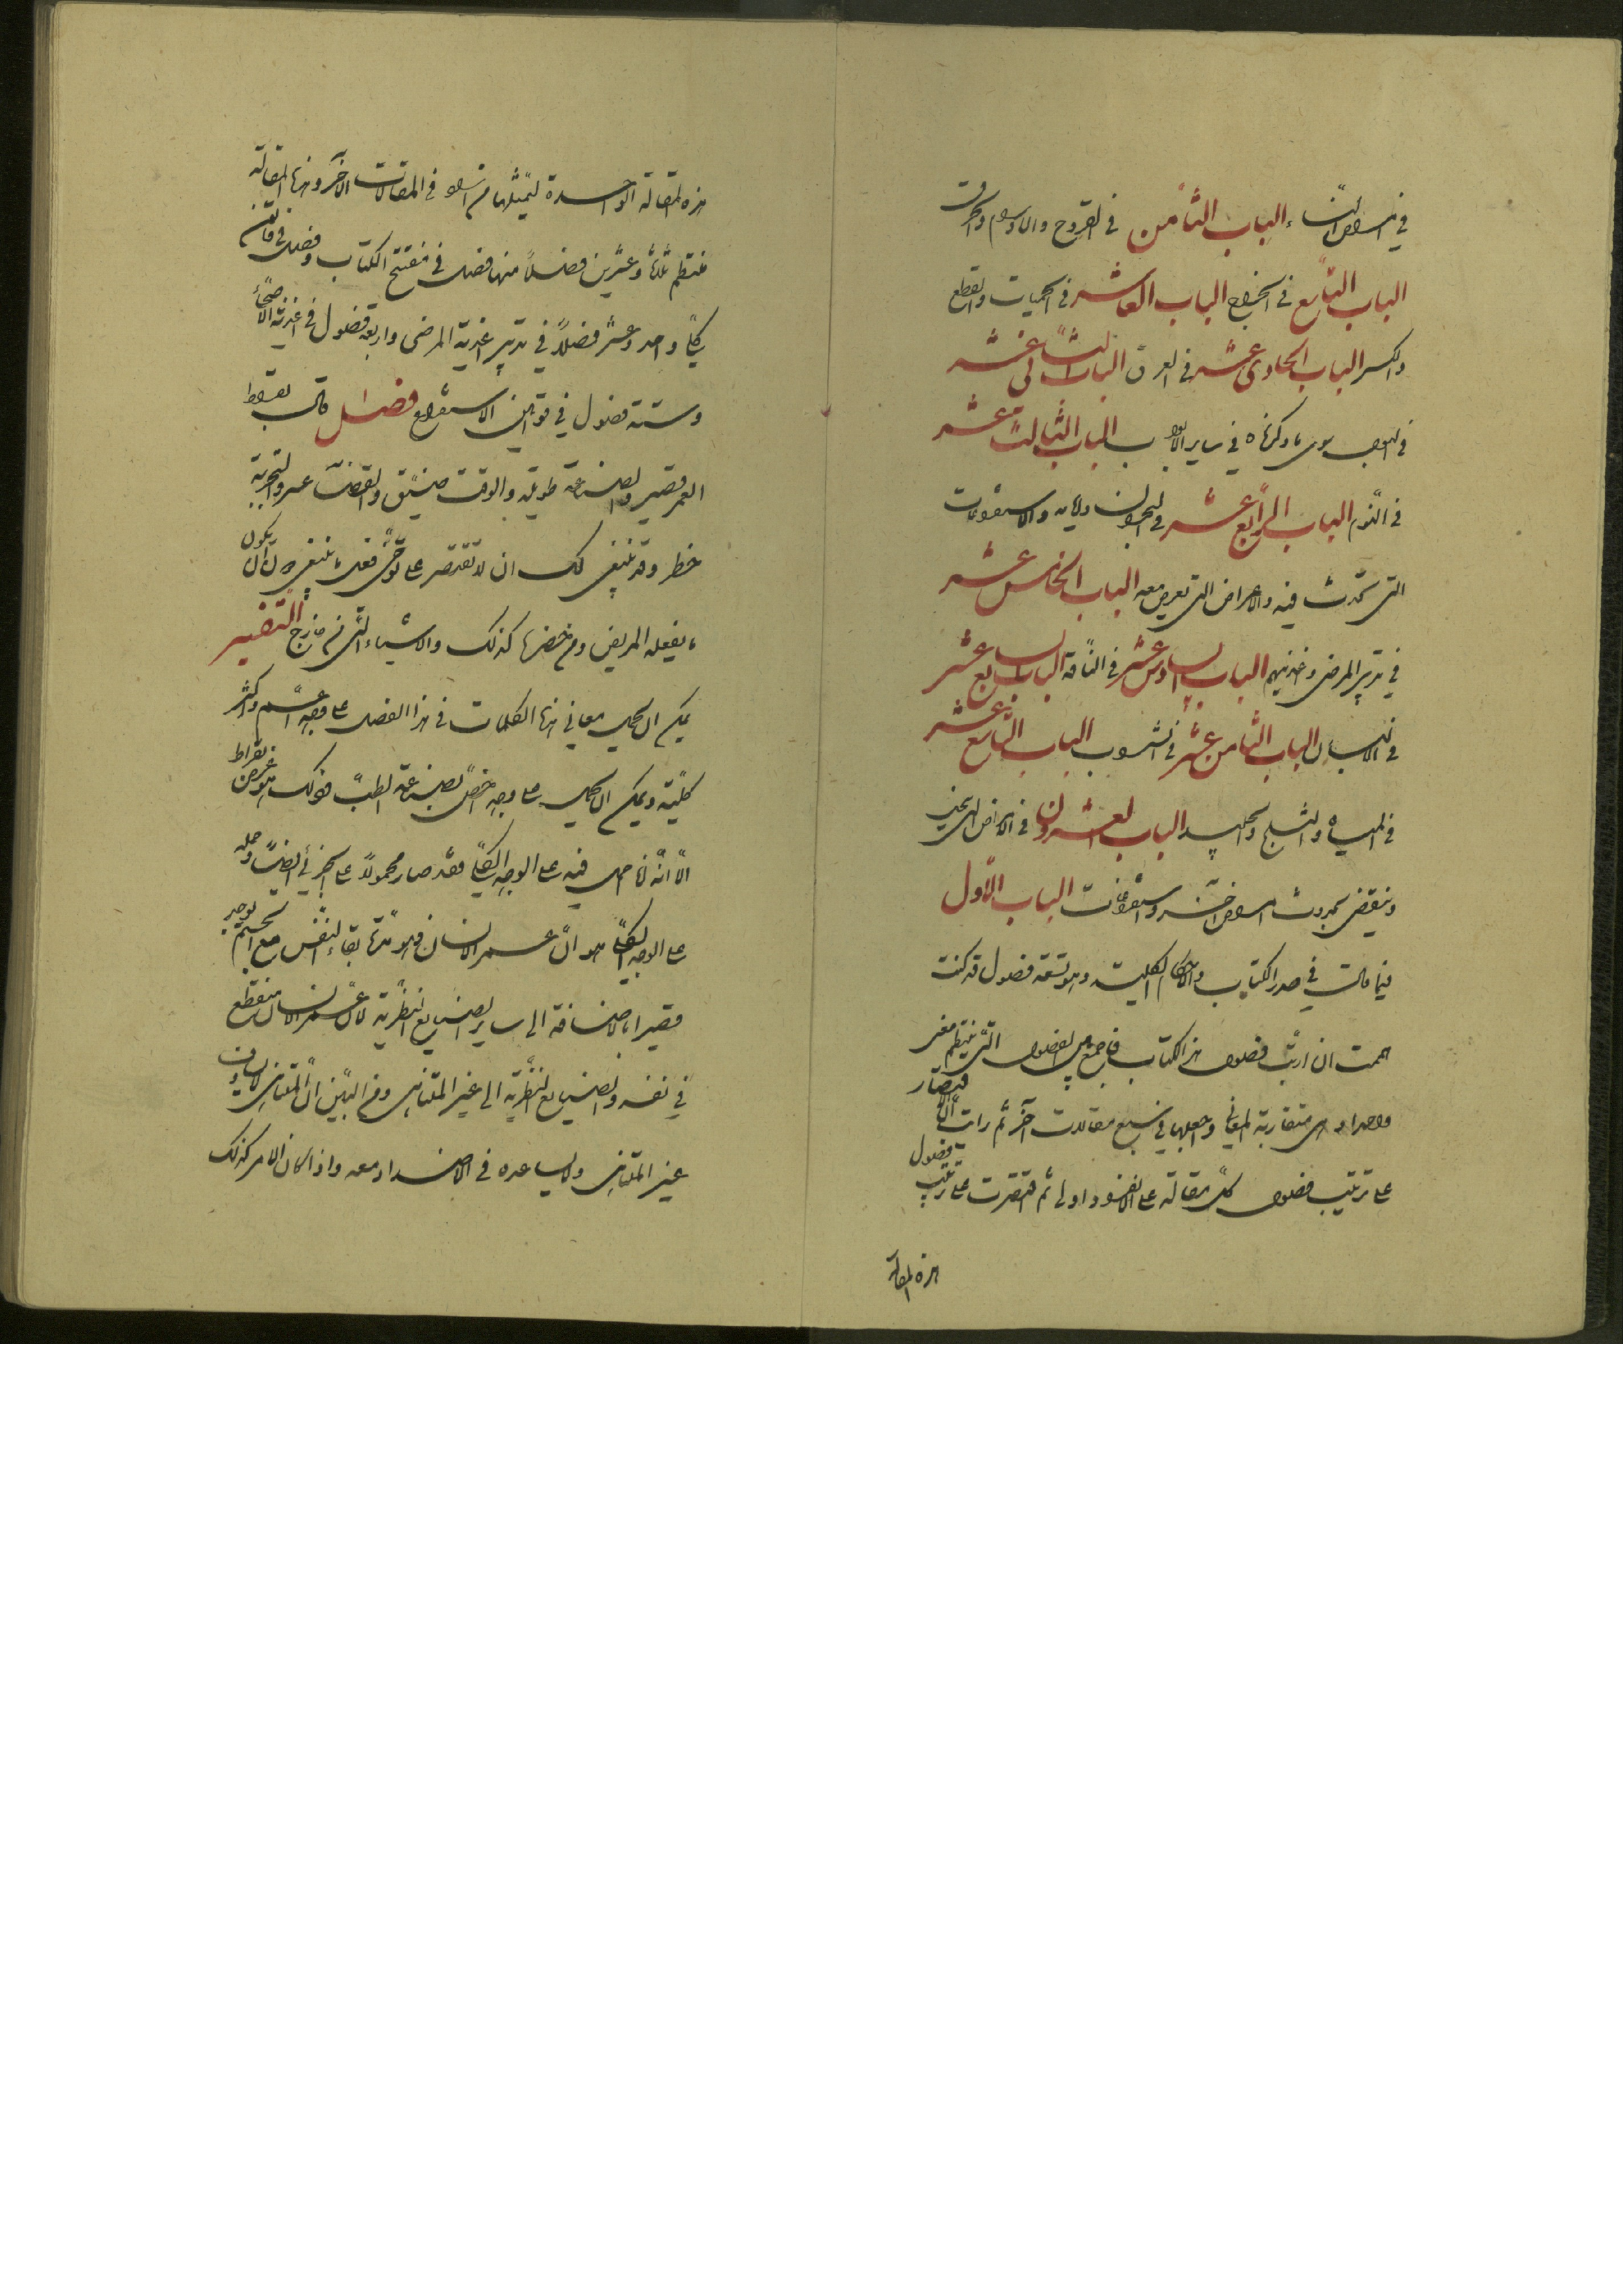 في امراض النساء الباب الثامن في القروح والاورام والجراحات
الباب التاسع في الخراج الباب العاشر في الحميات والقطع
والكسر الباب الحادي عشر في العرق الباب الثاني عشر
في البول سوى ما ذكرناه في ساير الابواب الباب الثالث عشر
في النوم الباب الرابع عشر في البحران والاستفراغات
التي تحدث فيه والاعراض التي تعرض معه الباب الخامس عشر
في تدبير المرضى وغذيتهم الباب السادس عشر في النافه الباب السابع عشر
في الاسهال الباب الثامن عشر في الشروب الباب التاسع عشر
في المياه والثلج والجليد الباب العشرون في الامراض التي تنحل
وينقضي بحدوث امراض اخر واستفراغات الباب الاول
فيما قالت في صدر الكتاب والاحكام الكلية وهو تسعة فصول قد كنت
هممت ان ارتب فصول هذا الكتاب فاجمع الفصول التي ينتظم معنى
واحدا وهي متقاربة المعاني واجعلها في سبع مقالات آخر ثم رايت ان الاقتصار
على ترتيب فصول كل مقالة على الانفراد اولى ثم اقتصرت على ترتيب فصول
هذه المقالة
هذه المقالة الواحدة ليمتثلها من اراد في المقالات الآخر وهذا المقالة
منتظم ثلثة وعشرين فصلا منها فصل في مفتتح الكتاب وفصل في قانون
كلي واحد وعشر فصلا في تدبير اغذية المرضى واربعة فصول في اغذية الاصحاء
وستة فصول في قوانين الاستفراغ فصل قال بقراط
العمر قصير والصناعة طويلة والوقت ضيق والقضاء عسر والتجربة
خطر وقد ينبغي لك ان لا تقتصر على توخي فعل ما ينبغي دون ان يكون
ما يفعله المريض ومن يحضره كذلك والاشياء التي من خارج التفسير
يمكن ان تحمل معاني هذا الكلمات في هذا الفصل على وجه اعم واكثر
كلية ويمكن ان تحمل على وجه اخص بصناعة الطب وذلك هو غرض بقراط
الا انه لما حمل فيه على الوجه الكلي فقد صار محمولا على الجزئي ايضا وحمله
على الوجه الكلي هو ان عمر الانسان وهو مدة بقاء النفس مع الجسم يوجد
قصيرا بالاضافة الى ساير الصنايع النظرية لان عمر الانسان منقطع
في نفسه والصنايع النظرية الى غير المتناهي ومن البين ان المتناهي لا يساوق
غير المتناهي ولا يساعده في الامتداد معه واذا كان الامر كذلك